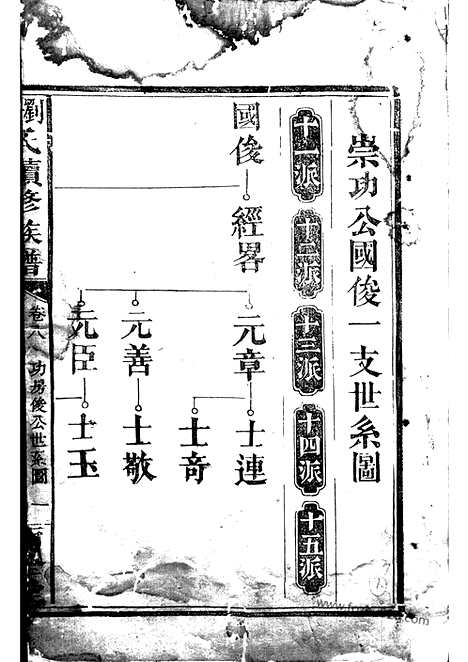 崇功公國俊一支世系圖
十一派
十二派
十三派
十四派
十五派
國俊
經畧
元章
士連
士奇
元善
士敬
元臣
士玉
劉氏續修族譜
卷八
功房俊公世系圖
一